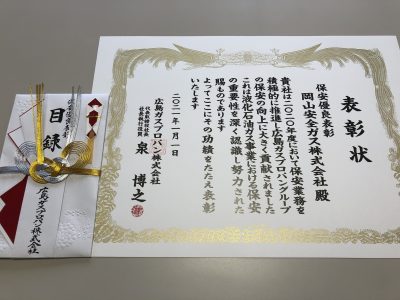 表彰状
保安優良表彰
岡山安全ガス株式会社 殿
貴社は二〇二〇年度において保安業務を
積極的に推進し広島ガスプロパングループ
の保安の向上に大きく貢献されました
これは液化石油ガス事業における保安
の重要性を深く認識し努力された
賜ものであります
よってここにその功績をたたえ表彰
いたします
二〇二一年一月一日
広島ガスプロパン株式会社
代表取締役社長
社長執行役員
泉 博之
保安優良表彰
目録
広島ガスプロパン株式会社